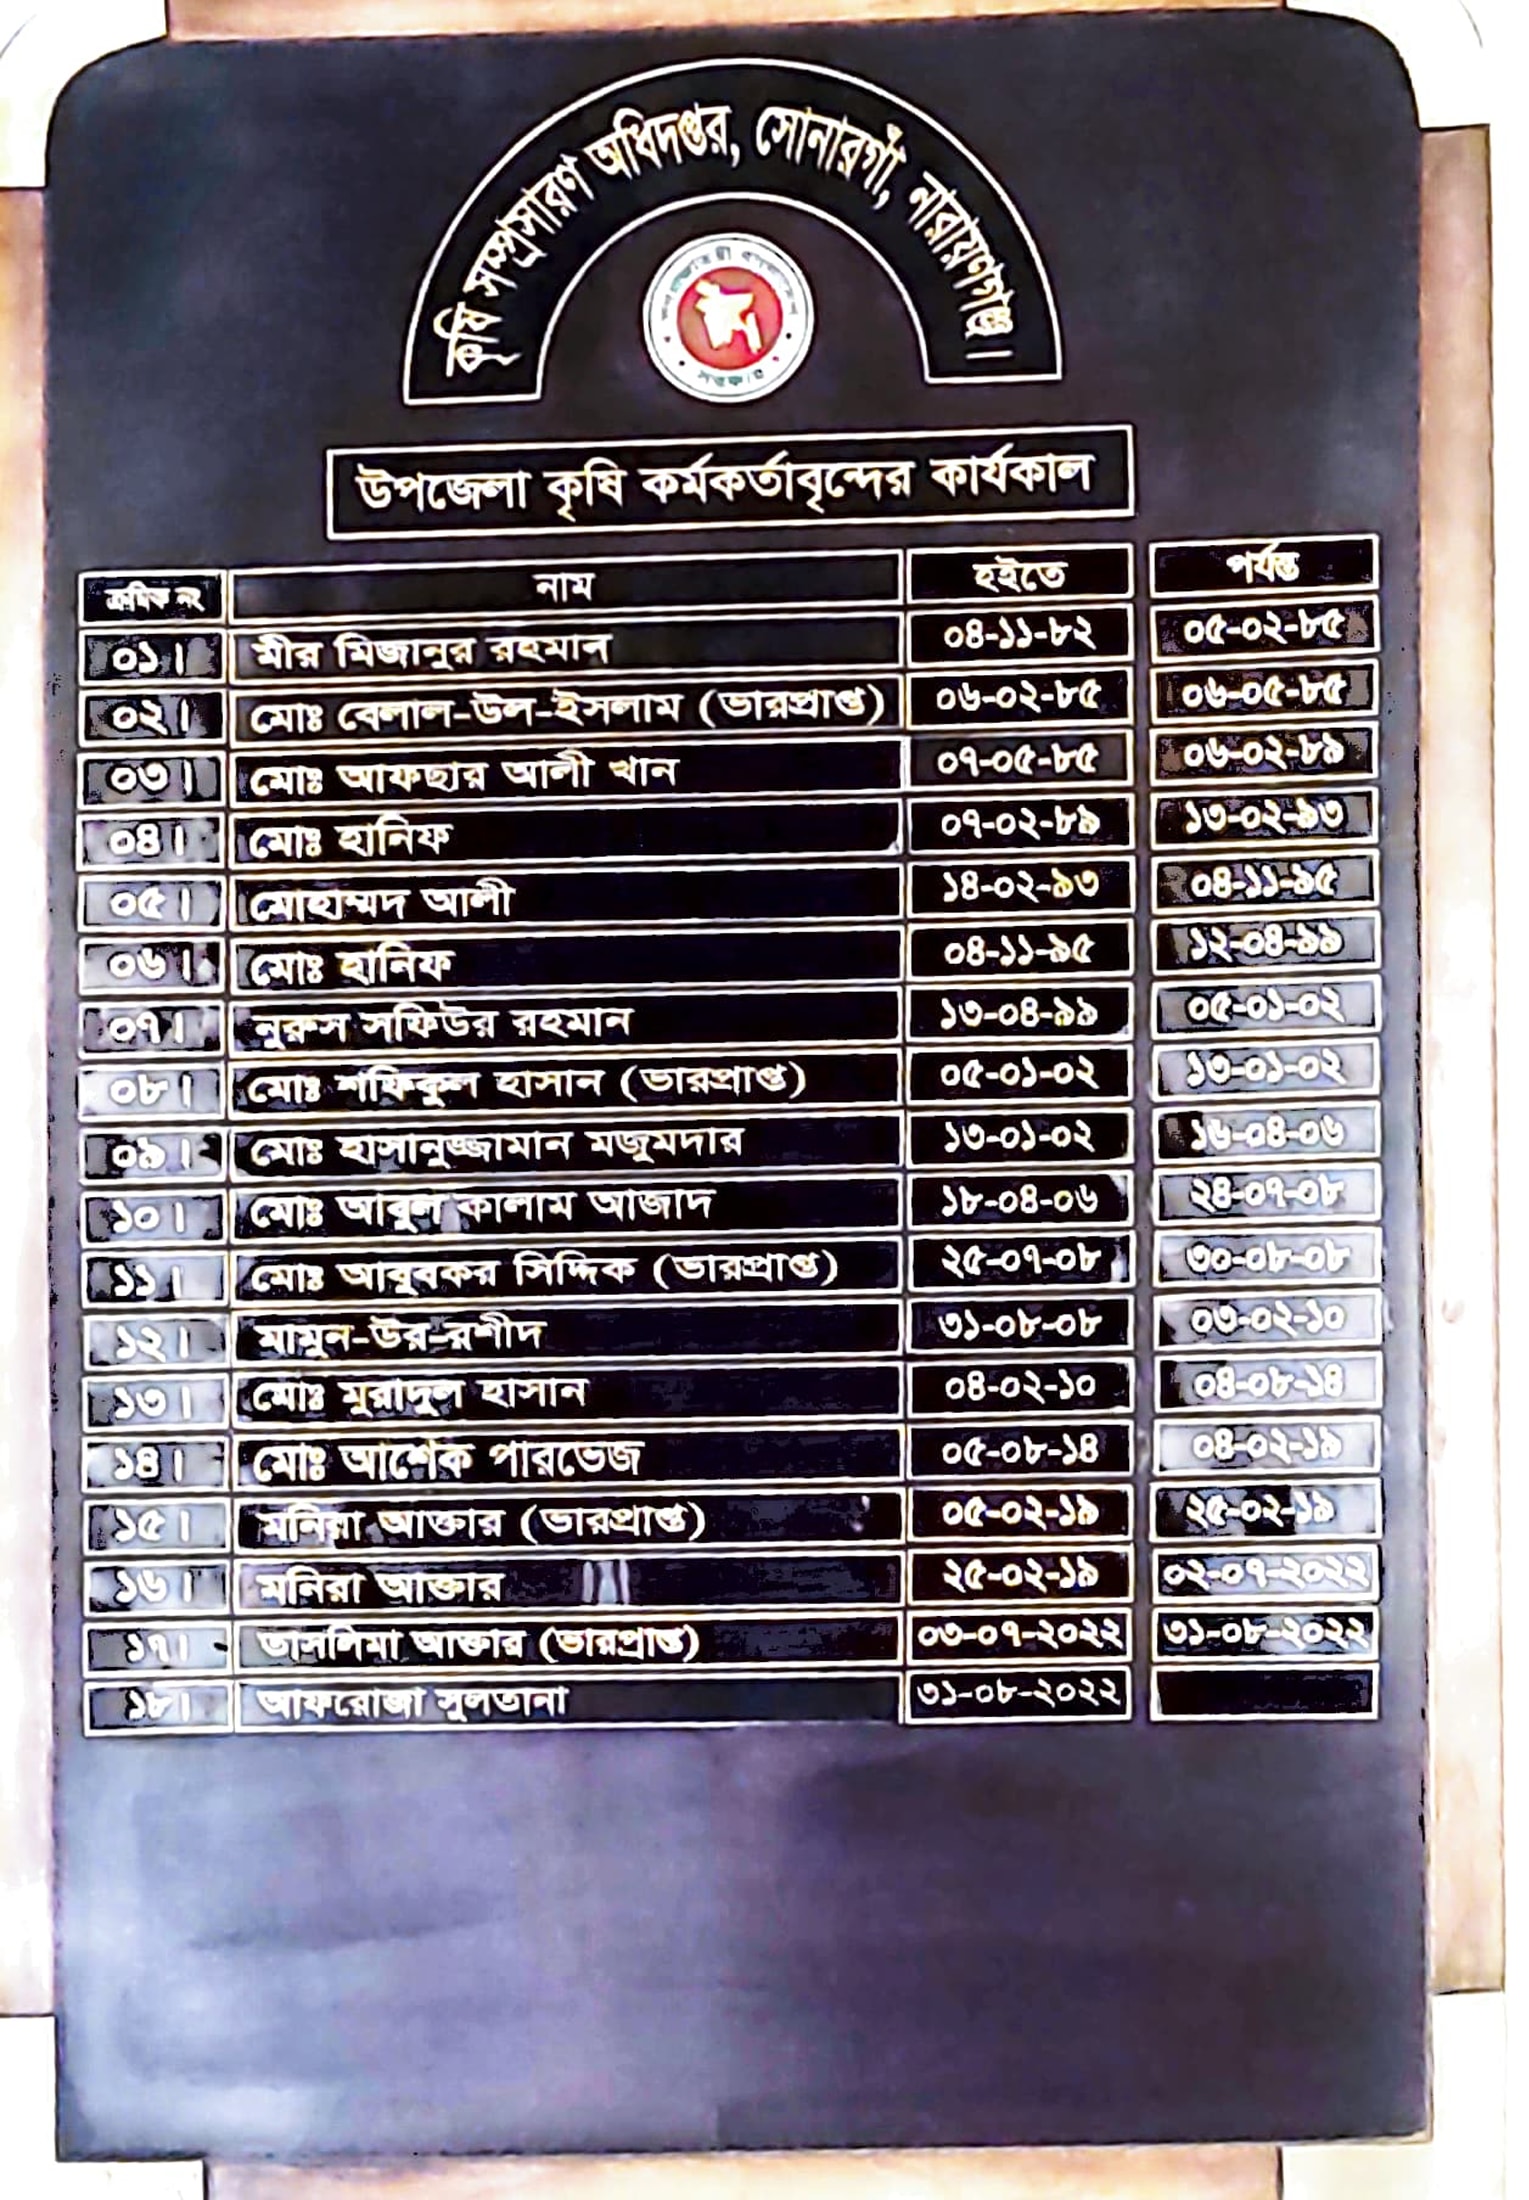 কৃষি সম্প্রসারণ অধিদপ্তর, সোনারগাঁ, নারায়ণগঞ্জ।
উপজেলা কৃষি কর্মকর্তাবৃন্দের কার্যকাল
ক্রমিক নং নাম হইতে পর্যন্ত
০১। মীর মিজানুর রহমান ০৪-১১-৮২ ০৫-০২-৮৫
০২। মোঃ বেলাল-উল-ইসলাম (ভারপ্রাপ্ত) ০৬-০২-৮৫ ০৬-০৫-৮৫
০৩। মোঃ আফছার আলী খান ০৭-০৫-৮৫ ০৬-০২-৮৯
০৪। মোঃ হানিফ ০৭-০২-৮৯ ১৩-০২-৯৩
০৫। মোহাম্মদ আলী ১৪-০২-৯৩ ০৪-১১-৯৫
০৬। মোঃ হানিফ ০৪-১১-৯৫ ১২-০৪-৯৯
০৭। নুরুস সফিউর রহমান ১৩-০৪-৯৯ ০৫-০১-০২
০৮। মোঃ শফিকুল হাসান (ভারপ্রাপ্ত) ০৫-০১-০২ ১৩-০১-০২
০৯। মোঃ হাসানুজ্জামান মজুমদার ১৩-০১-০২ ১৬-০৪-০৬
১০। মোঃ আবুল কালাম আজাদ ১৮-০৪-০৬ ২৪-০৭-০৮
১১। মোঃ আবুবকর সিদ্দিক (ভারপ্রাপ্ত) ২৫-০৭-০৮ ৩০-০৮-০৮
১২। মামুন-উর-রশীদ ৩১-০৮-০৮ ০৩-০২-১০
১৩। মোঃ মুরাদুল হাসান ০৪-০২-১০ ০৪-০৮-১৪
১৪। মোঃ আশেক পারভেজ ০৫-০৮-১৪ ০৪-০২-১৯
১৫। মনিরা আক্তার (ভারপ্রাপ্ত) ০৫-০২-১৯ ২৫-০২-১৯
১৬। মনিরা আক্তার ২৫-০২-১৯ ০২-০৭-২০২২
১৭। তাসলিমা আক্তার (ভারপ্রাপ্ত) ০৩-০৭-২০২২ ৩১-০৮-২০২২
১৮। আফরোজা সুলতানা ৩১-০৮-২০২২